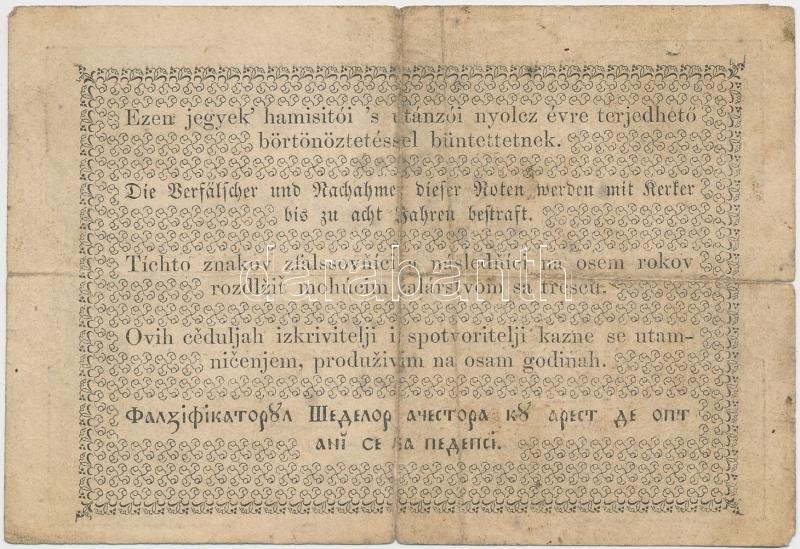 Ezen jegyek' hamisitói 's utánzói nyolcz évre terjedhető
börtönöztetéssel büntettetnek.
Die Verfälscher und Nachahmer dieser Noten werden mit Kerker
bis zu acht Jahren bestraft.
Tíchto znakov zfalssovňíci a následníci na osem rokov
rozdlžiť mohúcim žalárstvom sa trescú.
Ovih cèduljah izkrivitelji i spotvoritelji kazne se utam-
ničenjem, produživim na osam godinah.
Фалꙁіфікаторꙋл Шеделор ачестора кꙋ арест де опт
анĭ се ва педепсі.
darabanth